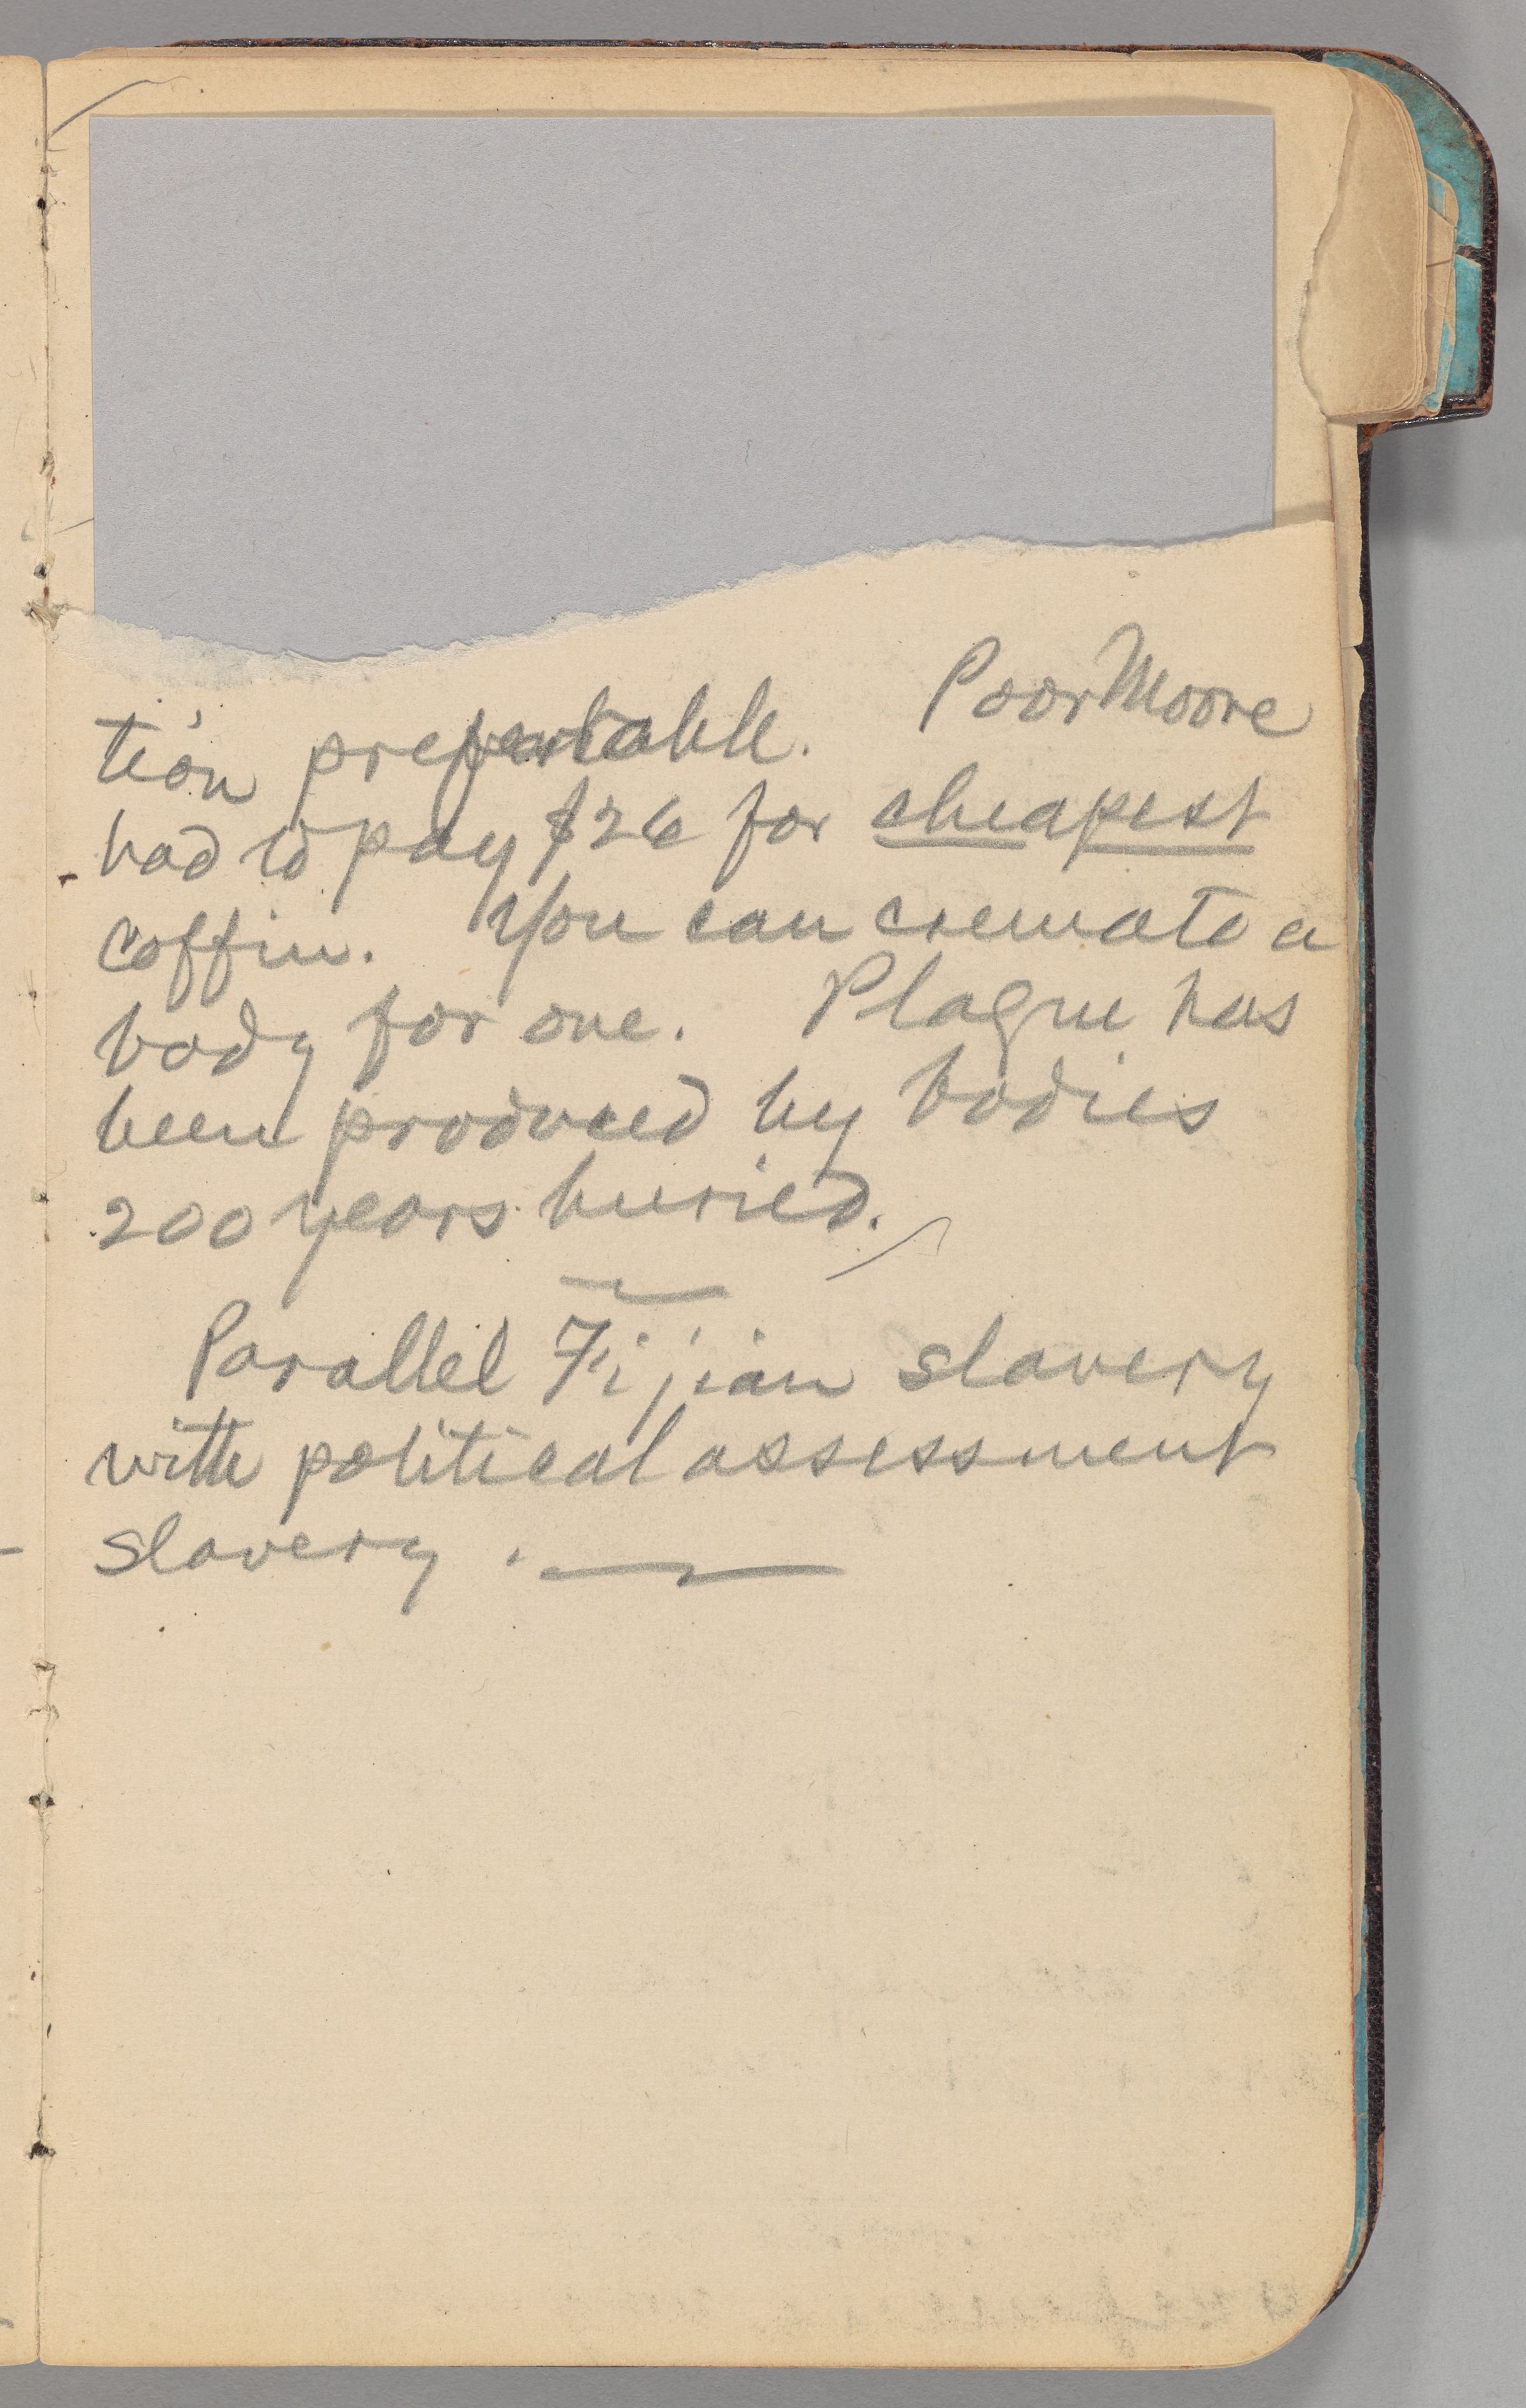 tion preferable. Poor Moore
had to pay $26 for cheapest
coffin. You can cremate a
body for one. Plague has
been produced by bodies
200 years buried.
Parallel Fijian slavery
with political assessment
slavery.